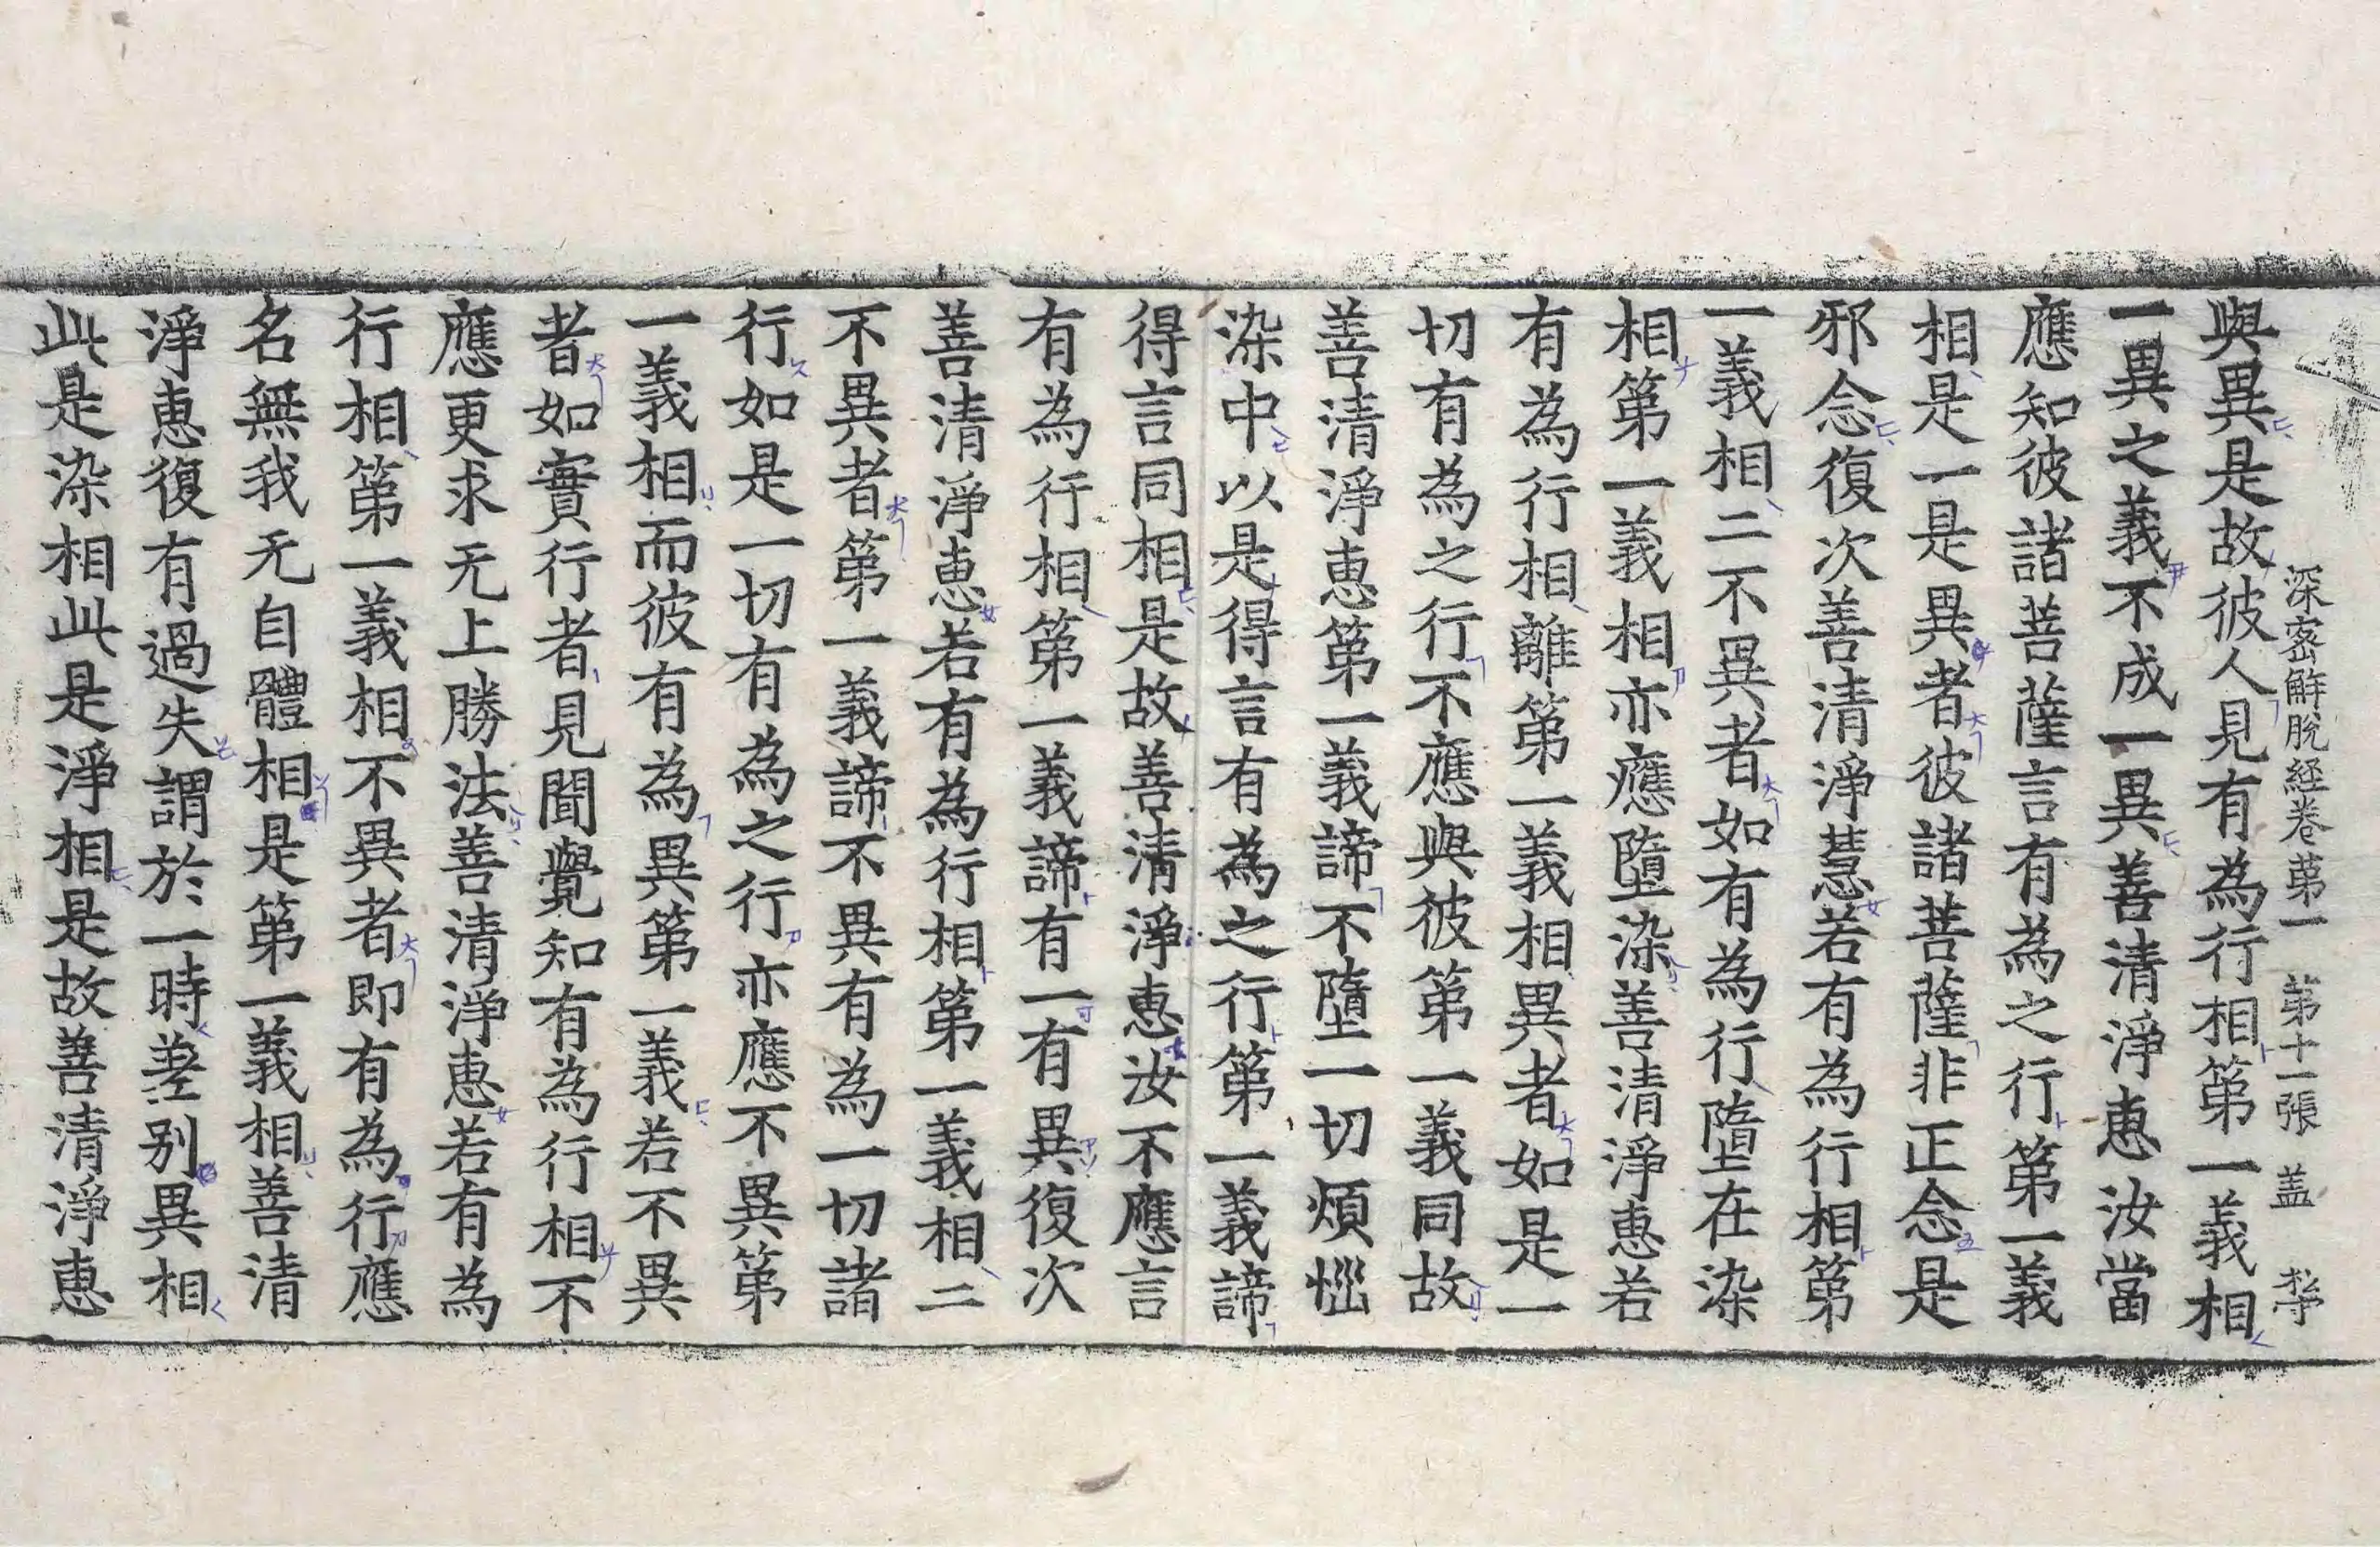 深密解脫経卷第一　第十一張　盖
與異是故彼人見有為行相第一義相
一異之義不成一異善清淨恵汝當
應知彼諸菩薩言有為之行第一義
相是一是異者彼諸菩薩非正念是
邪念復次善清淨慧若有為行相第
一義相二不異者如有為行墮在染
相第一義相亦應墮染善清淨恵若
有為行相離第一義相異者如是一
切有為之行不應與彼第一義同故
善清淨恵第一義諦不墮一切煩惱
染中以是得言有為之行第一義諦
得言同相是故善清淨恵汝不應言
有為行相第一義諦有一有異復次
善清淨恵若有為行相第一義相二
不異者第一義諦不異有為一切諸
行如是一切有為之行亦應不異第
一義相而彼有為異第一義若不異
者如實行者見聞覺知有為行相不
應更求无上勝法善清淨恵若有為
行相第一義相不異者即有為行應
名無我无自體相是第一義相善清
淨恵復有過失謂於一時差别異相
此是染相此是淨相是故善清淨恵